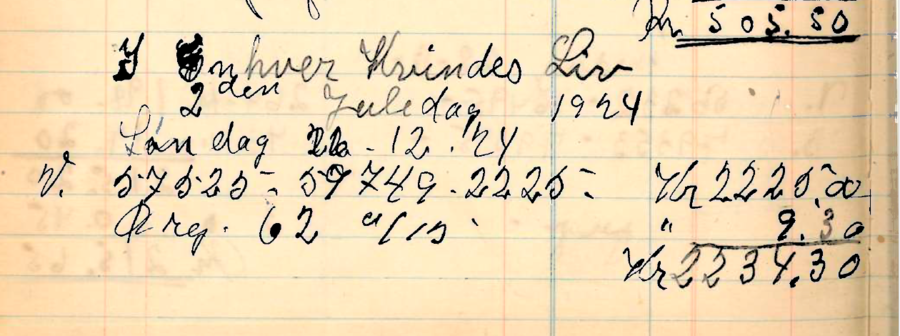 Kr 505.50
I Enhver Kvindes Liv
2den Juledag 1924
Søndag - 12.'24
V. 57525 - 59749 - 2225 - Kr 2225,00
Prog. 62 a/15 " 9.30
Kr 2234.30